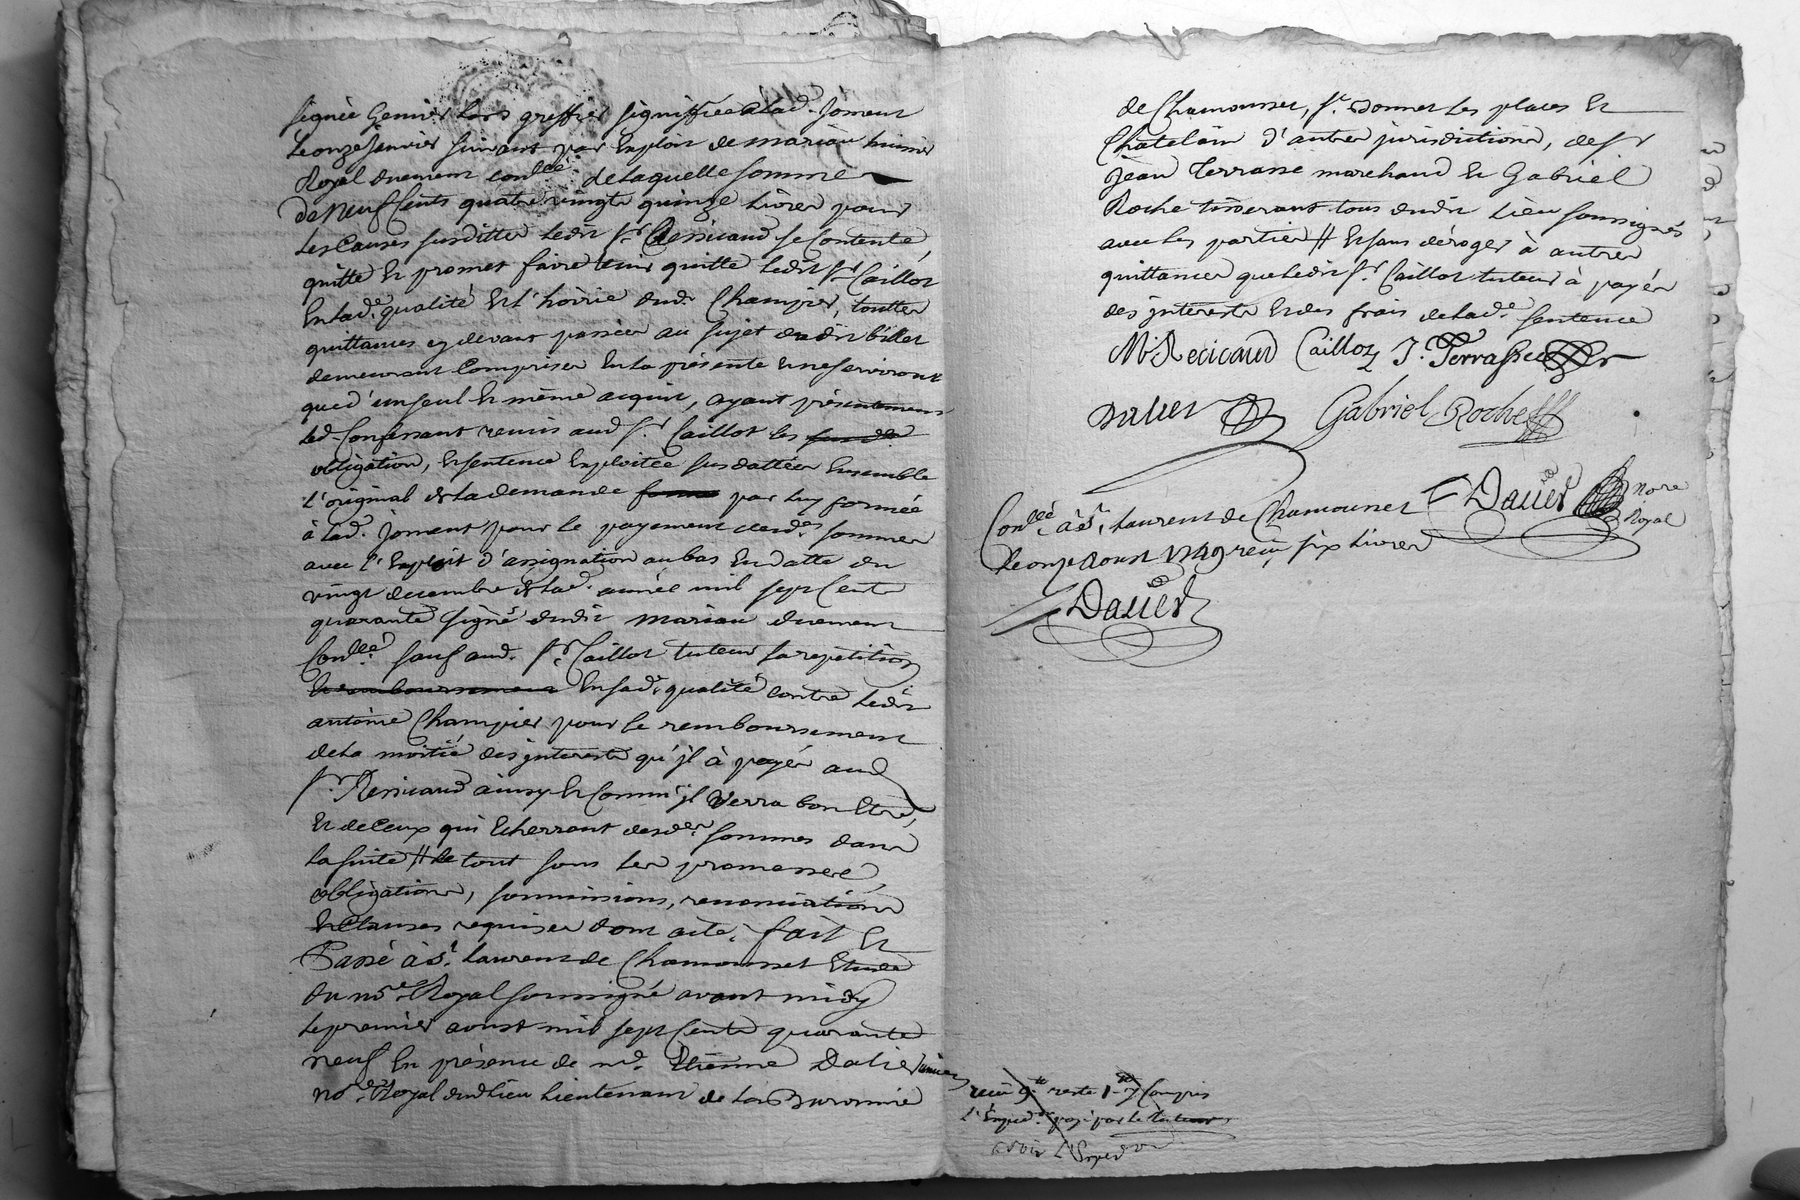 signée Gervais lors greffier signiffiée à lad. Joment
Le onze janvier suivant par Exploit de mariau huissier
Royal duement conllé. de laquelle somme
de Neuf Cents quatre vingts quinze livres pour
Les Causes susdittes ledit sr. Ressicaud se Contente,
quitte et promet faire tenir quitte ledit sr Caillot
En lad. qualité et l'hoirie dudt. Champier, touttes
quittances cy devant passées au sujet dudit billet
demeurant Comprises En la présente et ne serviront
que d'un seul et même acquit, ayant présentement
led. Confessant remis aud sr. Caillot les
obligation, et sentence Exploitée susdattées Ensemble
L'original de la demande par luy formée
à lad. Joment pour le payement desdes. sommes
avec l'Exploit d'assignation au bas En datte du
vingt decembre de lad. année mil sept Cents
quarante signé dudit mariau duement
Conllé. sauf aud. sr. Caillot tuteur sa repetition
En sad. qualité contre ledit
antoine Champier pour le remboursement
de la moitié des jnterests qu'jl à payés aud
sr. Ressicaud ainsy et Comm'jl verra bon Etre,
et de Ceux qui Echerront desdes. sommes dans
la suite // le tout sous les promesses,
obligations, soumissions, renonciations
et Clauses requises dont acte. fait et
Passé à St. Laurent de Chamousset Etude
du nore. Royal soussigné avant midy
le premier aoust mil sept Cents quarante
neuf En présence de me. Etienne Dalier
nore. Royal dud lieu Lieutenant de la Baronnie
de Chamousset, st. Bonnet les places et
Chatelain d'autres jurisdictions, de sr
jean Terrasse marchand et Gabriel
Roche tisserant tous dudit Lieu soussignés
avec les parties // et sans déroger à autres
quittances que ledit sr. Caillot tuteur à payés
des jnterests et des frais de lad. sentence
Caillot J. Terrasse
Dalier Gabriel Roche
Dalier nore
Royal
Conllé à St. Laurent de Chamousset
Le onze aoust 1749 reçu six Livres
Dalier
reste Compris
L'Exped. payé par le tuteur